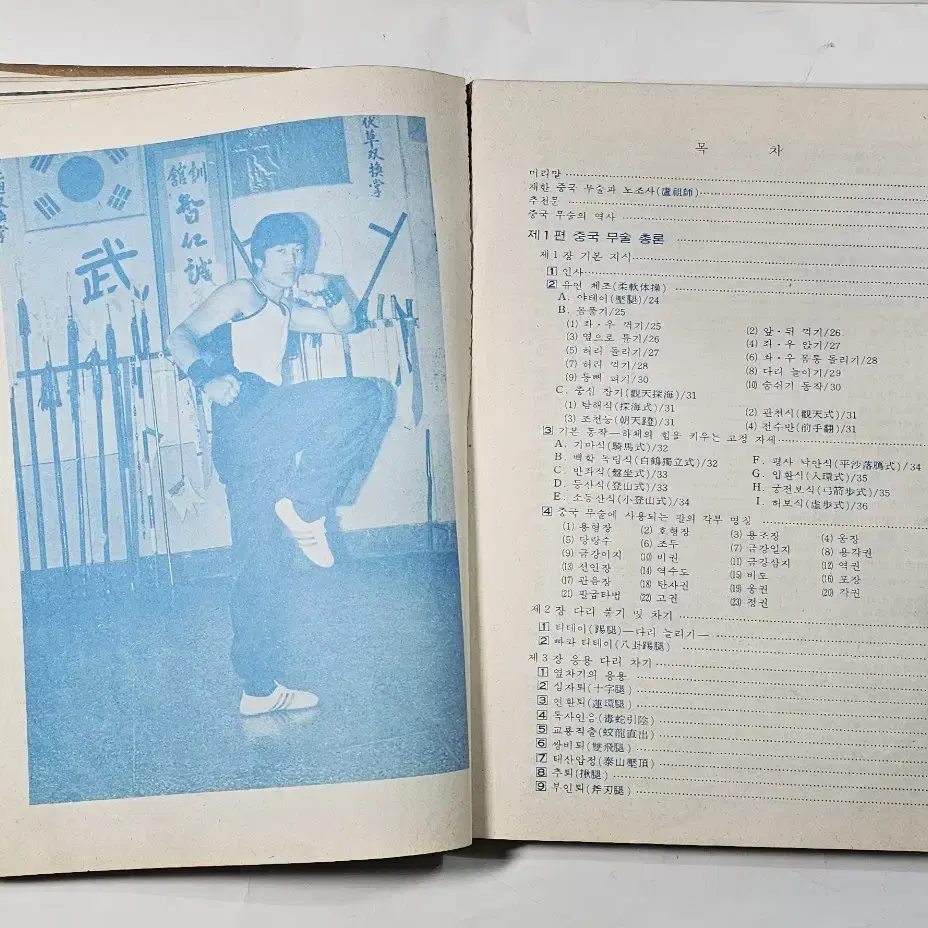 伏草双換掌
訓館
智仁誠
武
목 차
머리말
재한 중국 무술과 노조사(盧祖師)
추천문
중국 무술의 역사
제 1 편 중국 무술 총론
제 1 장 기본 지시
1 인사
2 유연 체조(柔軟体操)
A. 야테이(壓腿)/24
B. 몸풀기/25
(1) 좌·우 꺾기/25 (2) 앞·뒤 꺾기/26
(3) 옆으로 틀기/26 (4) 좌·우 앉기/27
(5) 허리 돌리기/27 (6) 좌·우 몸통 돌리기/28
(7) 허리 꺾기/28 (8) 다리 높이기/29
(9) 등뼈 펴기/30 (10) 숨쉬기 동작/30
C. 중심 잡기(觀天探海)/31
(1) 탐해식(探海式)/31 (2) 관천식(觀天式)/31
(3) 조천등(朝天蹬)/31 (4) 전수반(前手翻)/31
3 기본 동작—하체의 힘을 키우는 고정 자세
A. 기마식(騎馬式)/32
B. 백학 독립식(白鶴獨立式)/32 F. 평사 낙안식(平沙落鴈式)/34
C. 반좌식(盤坐式)/33 G. 입환식(入環式)/35
D. 등산식(登山式)/33 H. 궁전보식(弓箭步式)/35
E. 소등산식(小登山式)/34 I. 허보식(虛步式)/36
4 중국 무술에 사용되는 팔의 각부 명칭
(1) 용형장 (2) 호형장 (3) 용조장 (4) 웅장
(5) 당랑수 (6) 조두 (7) 금강일지 (8) 용각권
(9) 금강이지 (10) 비권 (11) 금강삼지 (12) 역권
(13) 선인장 (14) 역수도 (15) 비도 (16) 포장
(17) 관음장 (18) 탄자권 (19) 웅권 (20) 각권
(21) 팔굽타법 (22) 고권 (23) 정권
제 2 장 다리 풀기 및 차기
1 티테이(踢腿)—다리 늘리기—
2 빠꽈 티테이(八卦踢腿)
제 3 장 응용 다리 차기
1 옆차기의 응용
2 십자퇴(十字腿)
3 연환퇴(蓮環腿)
4 독사인음(毒蛇引陰)
5 교룡직출(蛟龍直出)
6 쌍비퇴(雙飛腿)
7 태산압정(泰山壓頂)
8 추퇴(揪腿)
9 부인퇴(斧刃腿)